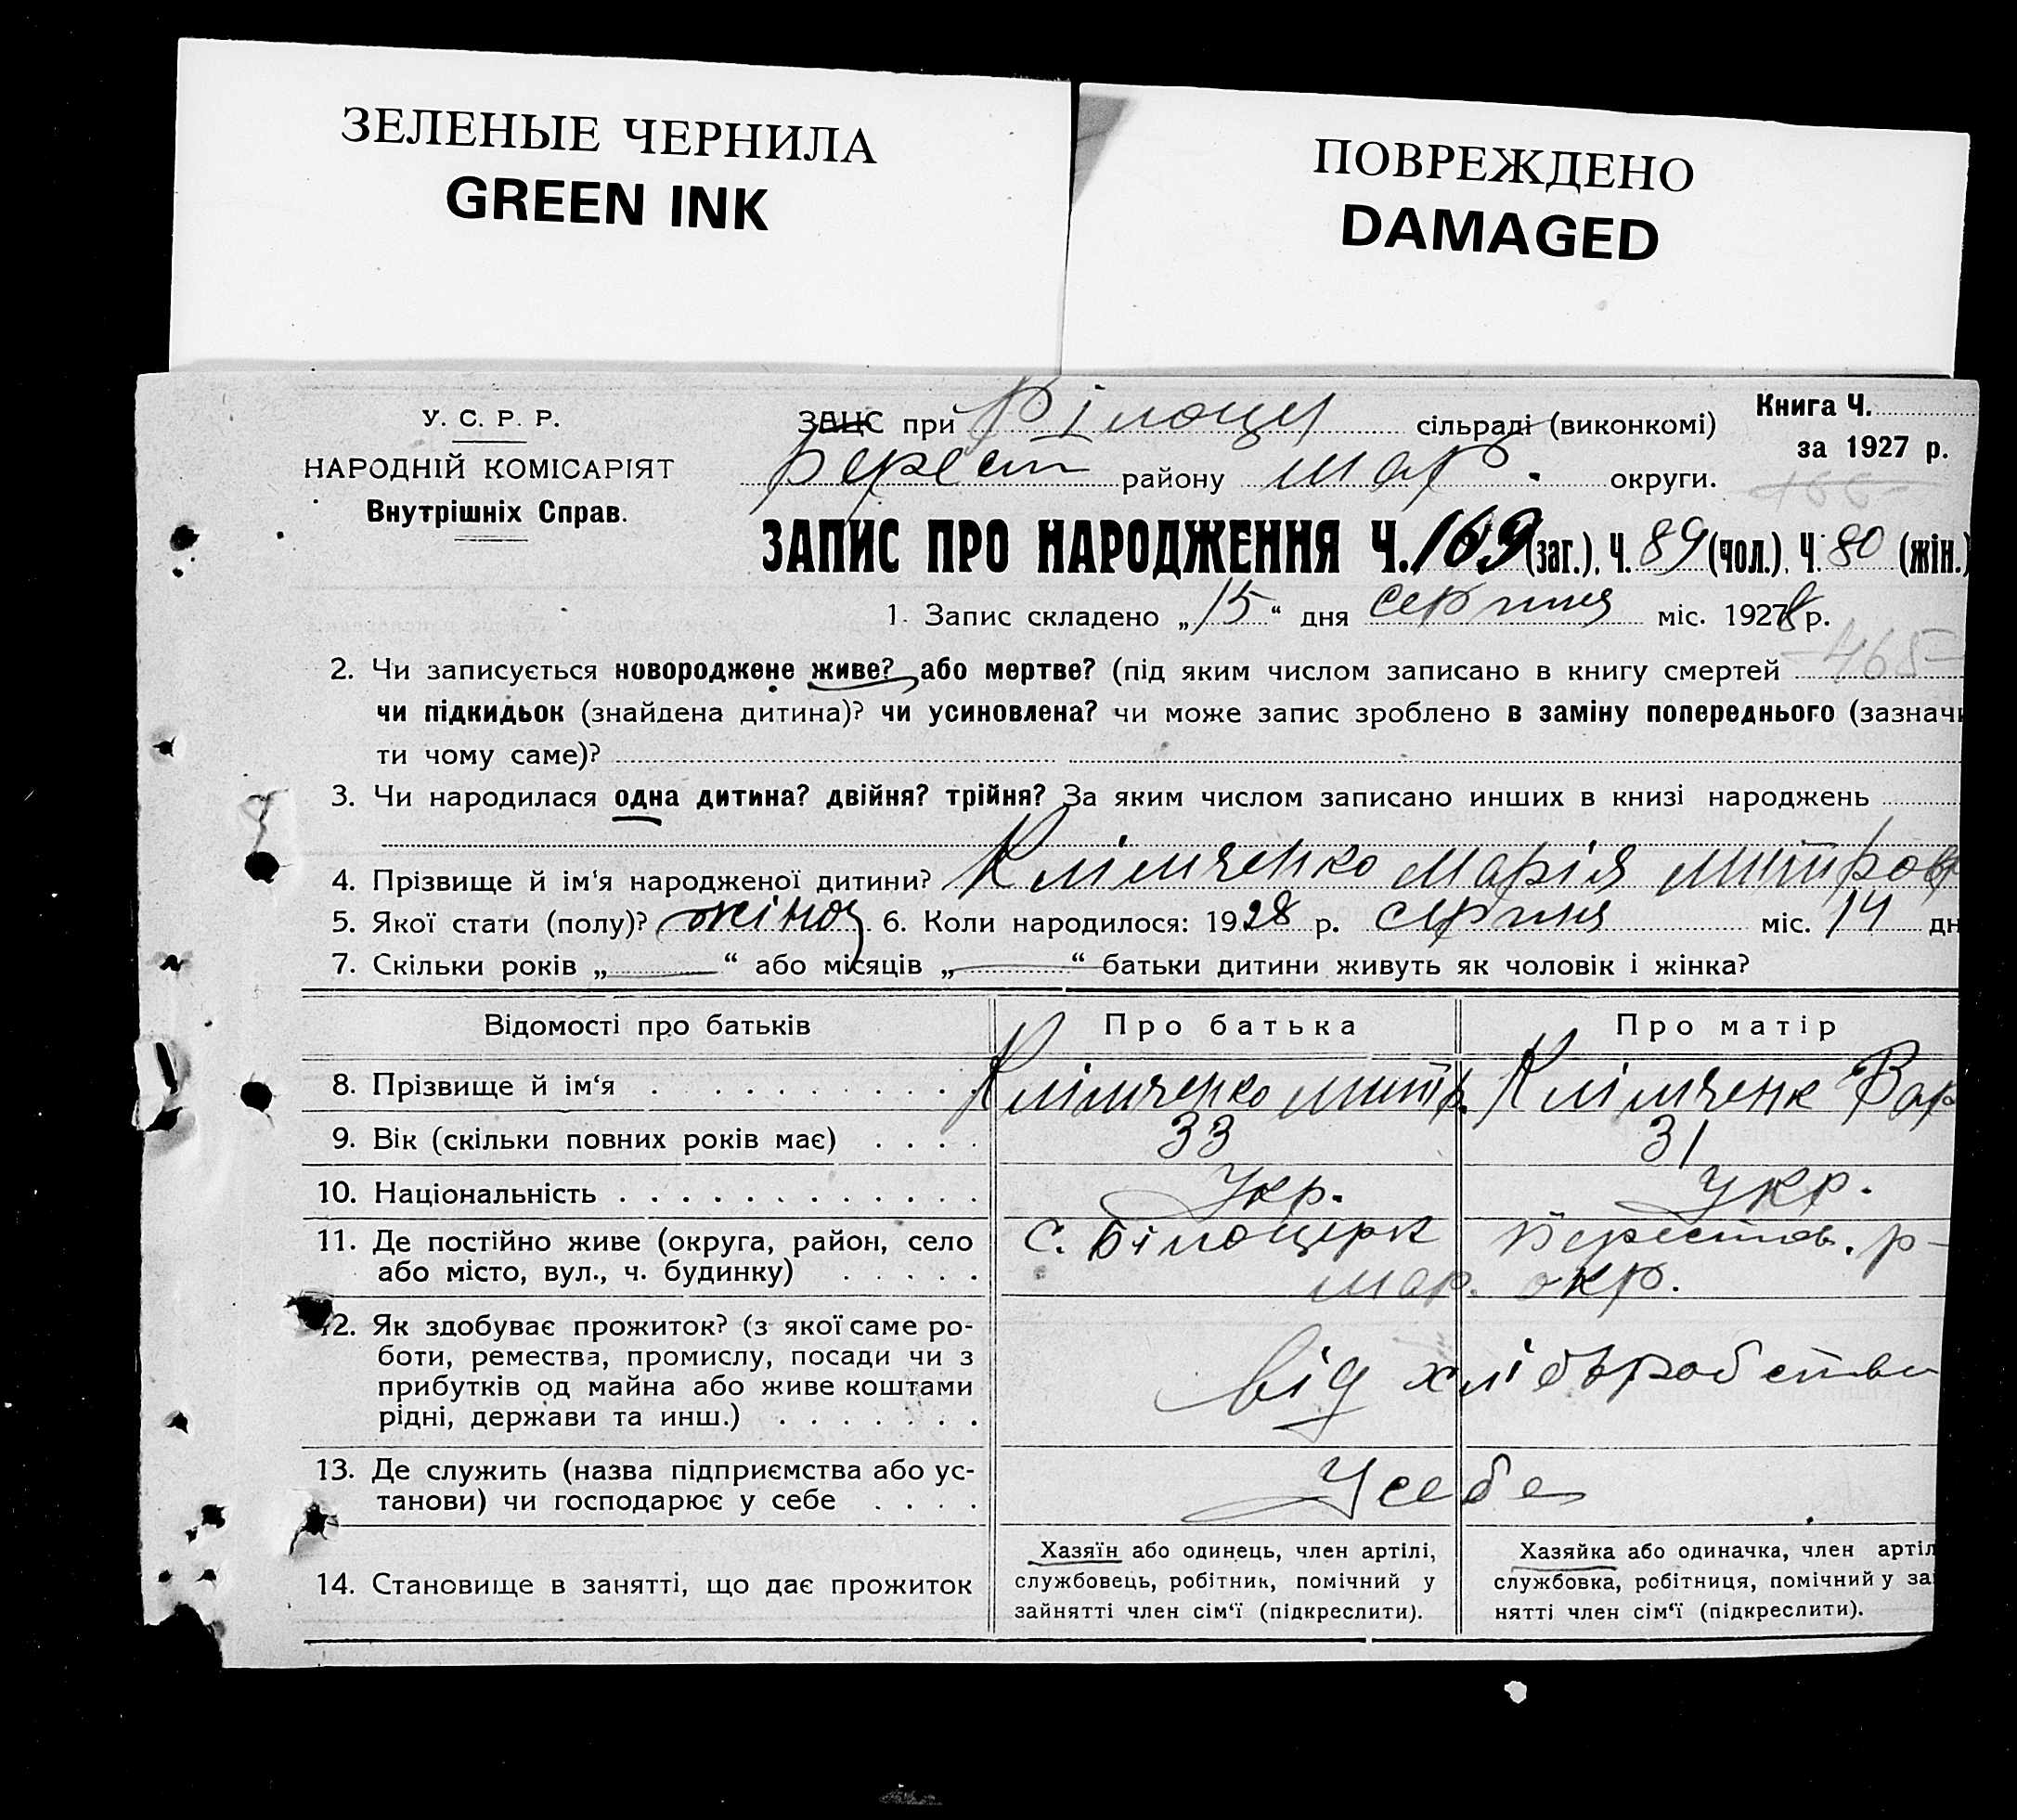 ЗЕЛЕНЫЕ ЧЕРНИЛА
GREEN INK
ПОВРЕЖДЕНО
DAMAGED
У. С. Р. Р.
НАРОДНІЙ КОМІСАРІЯТ
Внутрішніх Справ.
ЗАЦС при Білоцер сільраді (виконкомі)
Берест району Мар. округи.
Книга Ч.
за 1927 р.
166
ЗАПИС ПРО НАРОДЖЕННЯ Ч. 169 (заг.). Ч. 89 (чол.). Ч. 80 (жін.)
1. Запис складено „15“ дня серпня міс. 1928 р.
2. Чи записується новороджене живе? або мертве? (під яким числом записано в книгу смертей -465-
чи підкидьок (знайдена дитина)? чи усиновлена? чи може запис зроблено в заміну попереднього (зазначи
ти чому саме)?
3. Чи народилася одна дитина? двійня? трійня? За яким числом записано инших в книзі народжень
4. Прізвище й ім‘я народженої дитини? Клімченко Марія Митров
5. Якої стати (полу)? жіноч 6. Коли народилося: 1928 р. серпня міс. 14 дн
7. Скільки років „—“ або місяців „—“ батьки дитини живуть як чоловік і жінка?
Відомості про батьків Про батька Про матір
8. Прізвище й ім‘я Клімченко Митр. Клімченк Вар
9. Вік (скільки повних років має) 33 31
10. Національність Укр. Укр.
11. Де постійно живе (округа, район, село с. Білоцерк Берестов. р-
або місто, вул., ч. будинку) Мар. окр.
12. Як здобуває прожиток? (з якої саме ро-
боти, ремества, промислу, посади чи з від хліборобства
прибутків од майна або живе коштами
рідні, держави та инш.)
13. Де служить (назва підприємства або ус- У себе
танови) чи господарює у себе
14. Становище в занятті, що дає прожиток
Хазяїн або одинець, член артілі,
службовець, робітник, помічний у
зайнятті член сім‘ї (підкреслити).
Хазяйка або одиначка, член артіл
службовка, робітниця, помічний у за
нятті член сім‘ї (підкреслити).